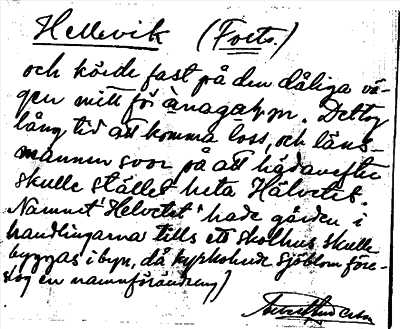 Hellevik (Forts.)
och körde fast på den dåliga vä-
gen mitt för ånagat, pr. Det tog
lång tid att komma loss, och läns-
mannen svor på att hädanefter
skulle stället heta Hälvetet.
Namnet "Helvetet" hade gården i
handlingarna tills ett skolhus skulle
byggas i byn, då kyrkoherde Sjöblom före-
slog en namnförändring)